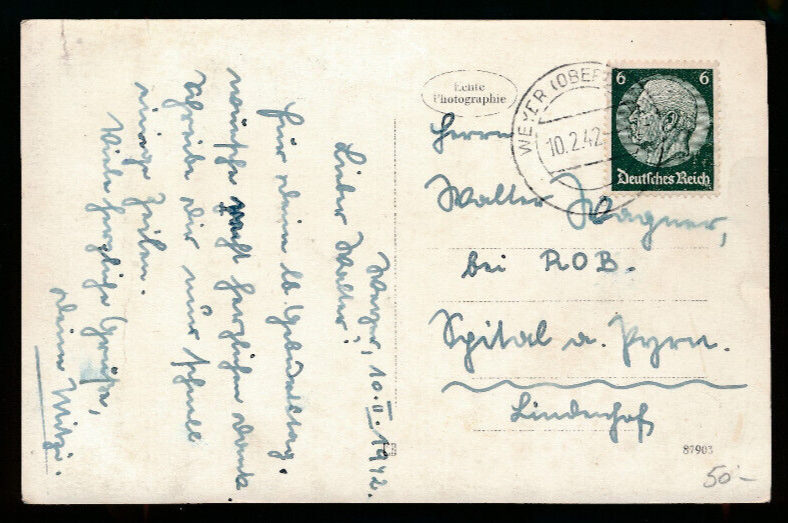 Echte
Photographie
WEYER (OBER
10.2.42
6 6
Deutsches Reich
Herrn
Walter Wagner,
bei ROB.
Spital a. Pyrn.
Lindenhof
87903
50.-
Weyer, 10.II.1942.
Lieber Walter!
Für deine lb. Geburtstag.
wünsche recht herzlichen Dank
Schreibe dir nur schnell
einige Zeilen.
Viele herzliche Grüße,
deine Mitzi.